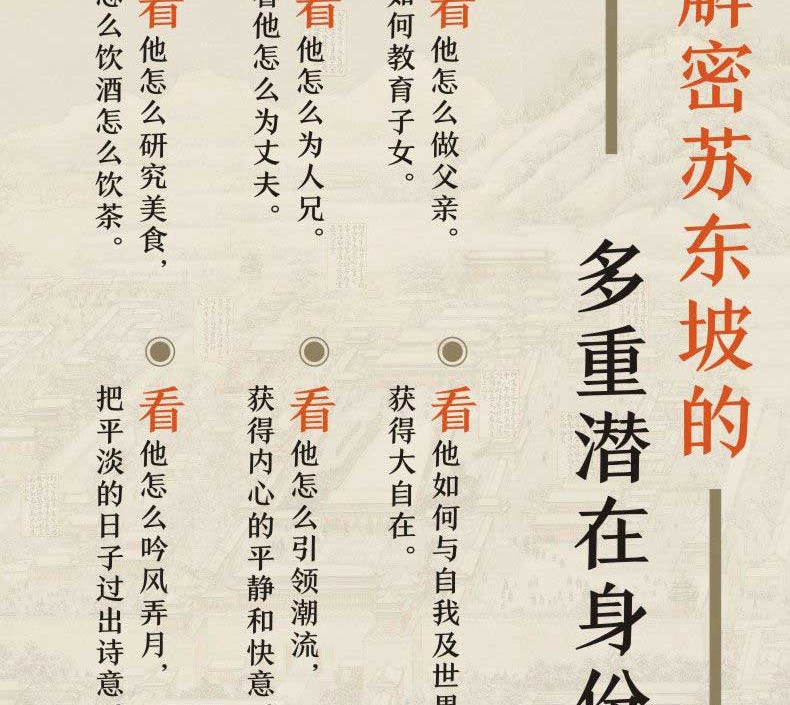 解密苏东坡的
多重潜在身份
看他怎么做父亲。
如何教育子女。
看他怎么为人兄。
看他怎么为丈夫。
看他怎么研究美食,
怎么饮酒怎么饮茶。
看他如何与自我及世界
获得大自在。
看他怎么引领潮流,
获得内心的平静和快意
看他怎么吟风弄月,
把平淡的日子过出诗意